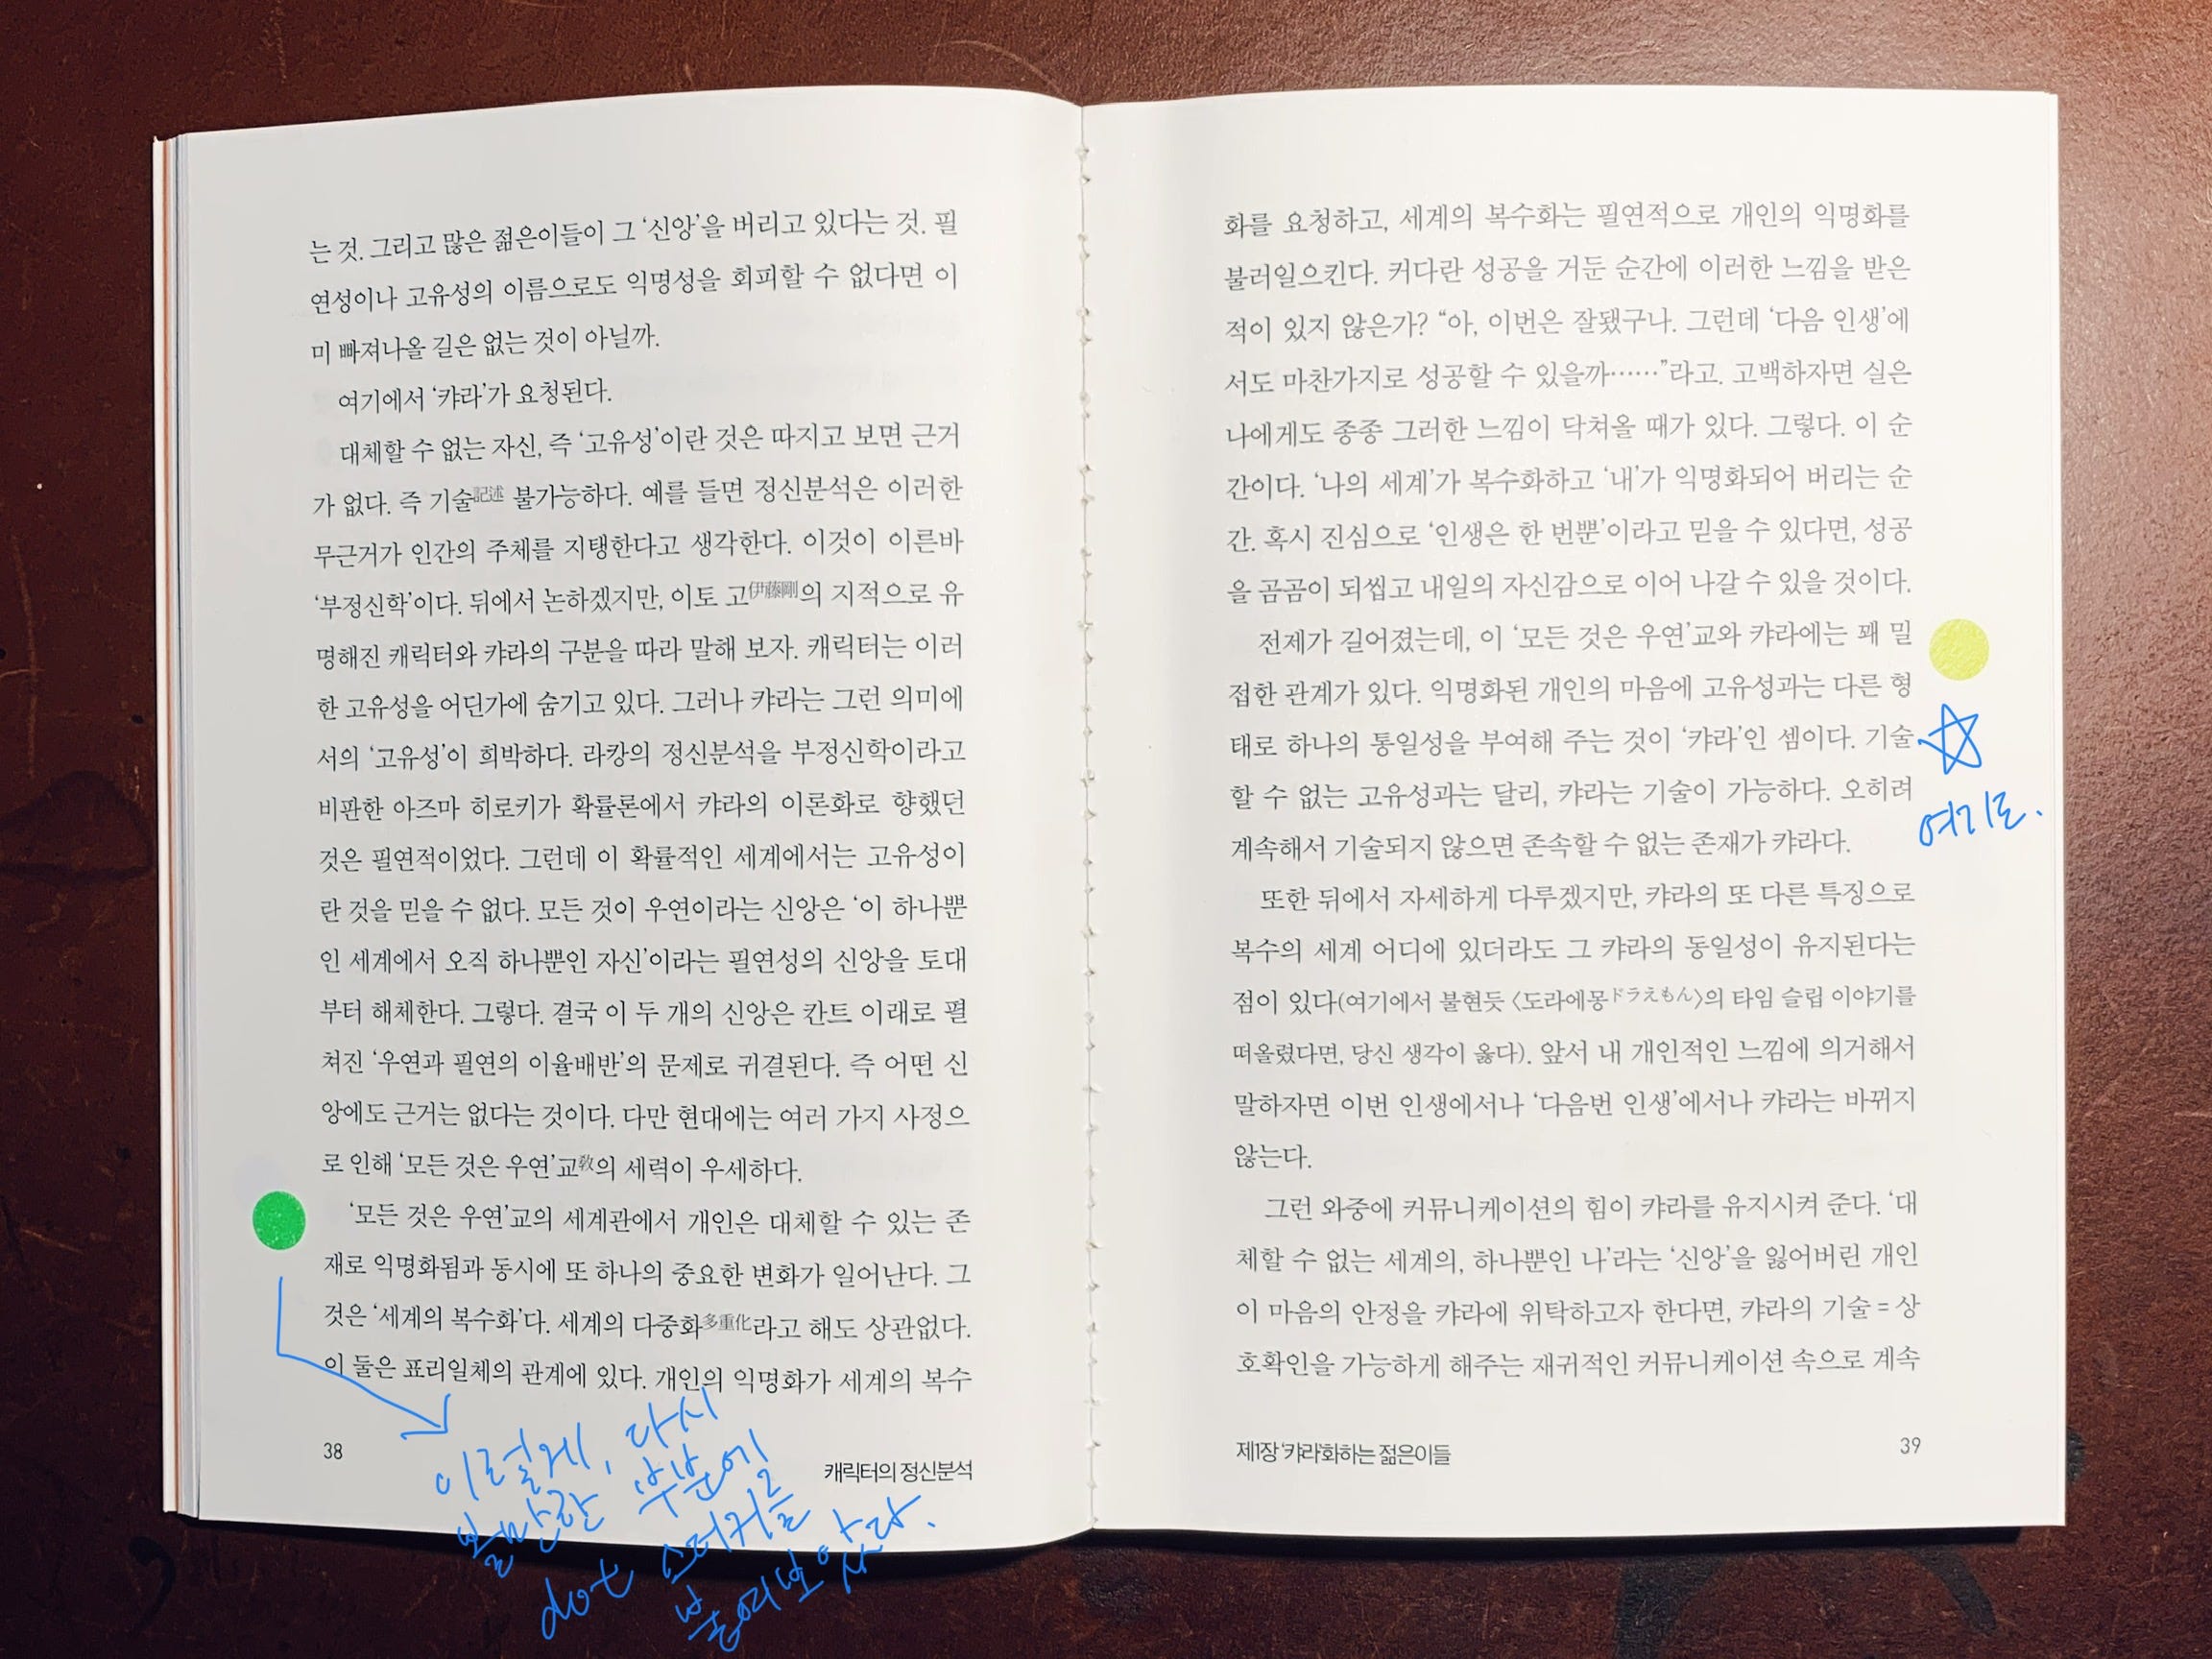 는 것. 그리고 많은 젊은이들이 그 ‘신앙’을 버리고 있다는 것. 필
연성이나 고유성의 이름으로도 익명성을 회피할 수 없다면 이
미 빠져나올 길은 없는 것이 아닐까.
여기에서 ‘캬라’가 요청된다.
대체할 수 없는 자신, 즉 ‘고유성’이란 것은 따지고 보면 근거
가 없다. 즉 기술記述 불가능하다. 예를 들면 정신분석은 이러한
무근거가 인간의 주체를 지탱한다고 생각한다. 이것이 이른바
‘부정신학’이다. 뒤에서 논하겠지만, 이토 고伊藤剛의 지적으로 유
명해진 캐릭터와 캬라의 구분을 따라 말해 보자. 캐릭터는 이러
한 고유성을 어딘가에 숨기고 있다. 그러나 캬라는 그런 의미에
서의 ‘고유성’이 희박하다. 라캉의 정신분석을 부정신학이라고
비판한 아즈마 히로키가 확률론에서 캬라의 이론화로 향했던
것은 필연적이었다. 그런데 이 확률적인 세계에서는 고유성이
란 것을 믿을 수 없다. 모든 것이 우연이라는 신앙은 ‘이 하나뿐
인 세계에서 오직 하나뿐인 자신’이라는 필연성의 신앙을 토대
부터 해체한다. 그렇다. 결국 이 두 개의 신앙은 칸트 이래로 펼
쳐진 ‘우연과 필연의 이율배반’의 문제로 귀결된다. 즉 어떤 신
앙에도 근거는 없다는 것이다. 다만 현대에는 여러 가지 사정으
로 인해 ‘모든 것은 우연’교敎의 세력이 우세하다.
‘모든 것은 우연’교의 세계관에서 개인은 대체할 수 있는 존
재로 익명화됨과 동시에 또 하나의 중요한 변화가 일어난다. 그
것은 ‘세계의 복수화’다. 세계의 다중화多重化라고 해도 상관없다.
이 둘은 표리일체의 관계에 있다. 개인의 익명화가 세계의 복수
38
캐릭터의 정신분석
이렇게, 다시
볼만한 부분에
dot 스티커를
붙여보았다.
화를 요청하고, 세계의 복수화는 필연적으로 개인의 익명화를
불러일으킨다. 커다란 성공을 거둔 순간에 이러한 느낌을 받은
적이 있지 않은가? “아, 이번은 잘됐구나. 그런데 ‘다음 인생’에
서도 마찬가지로 성공할 수 있을까……”라고. 고백하자면 실은
나에게도 종종 그러한 느낌이 닥쳐올 때가 있다. 그렇다. 이 순
간이다. ‘나의 세계’가 복수화하고 ‘내’가 익명화되어 버리는 순
간. 혹시 진심으로 ‘인생은 한 번뿐’이라고 믿을 수 있다면, 성공
을 곰곰이 되씹고 내일의 자신감으로 이어 나갈 수 있을 것이다.
전제가 길어졌는데, 이 ‘모든 것은 우연’교와 캬라에는 꽤 밀
접한 관계가 있다. 익명화된 개인의 마음에 고유성과는 다른 형
태로 하나의 통일성을 부여해 주는 것이 ‘캬라’인 셈이다. 기술
할 수 없는 고유성과는 달리, 캬라는 기술이 가능하다. 오히려
계속해서 기술되지 않으면 존속할 수 없는 존재가 캬라다.
여기도.
또한 뒤에서 자세하게 다루겠지만, 캬라의 또 다른 특징으로
복수의 세계 어디에 있더라도 그 캬라의 동일성이 유지된다는
점이 있다(여기에서 불현듯 〈도라에몽ドラえもん〉의 타임 슬립 이야기를
떠올렸다면, 당신 생각이 옳다). 앞서 내 개인적인 느낌에 의거해서
말하자면 이번 인생에서나 ‘다음번 인생’에서나 캬라는 바뀌지
않는다.
그런 와중에 커뮤니케이션의 힘이 캬라를 유지시켜 준다. ‘대
체할 수 없는 세계의, 하나뿐인 나’라는 ‘신앙’을 잃어버린 개인
이 마음의 안정을 캬라에 위탁하고자 한다면, 캬라의 기술 = 상
호확인을 가능하게 해주는 재귀적인 커뮤니케이션 속으로 계속
제1장 ‘캬라’화하는 젊은이들
39